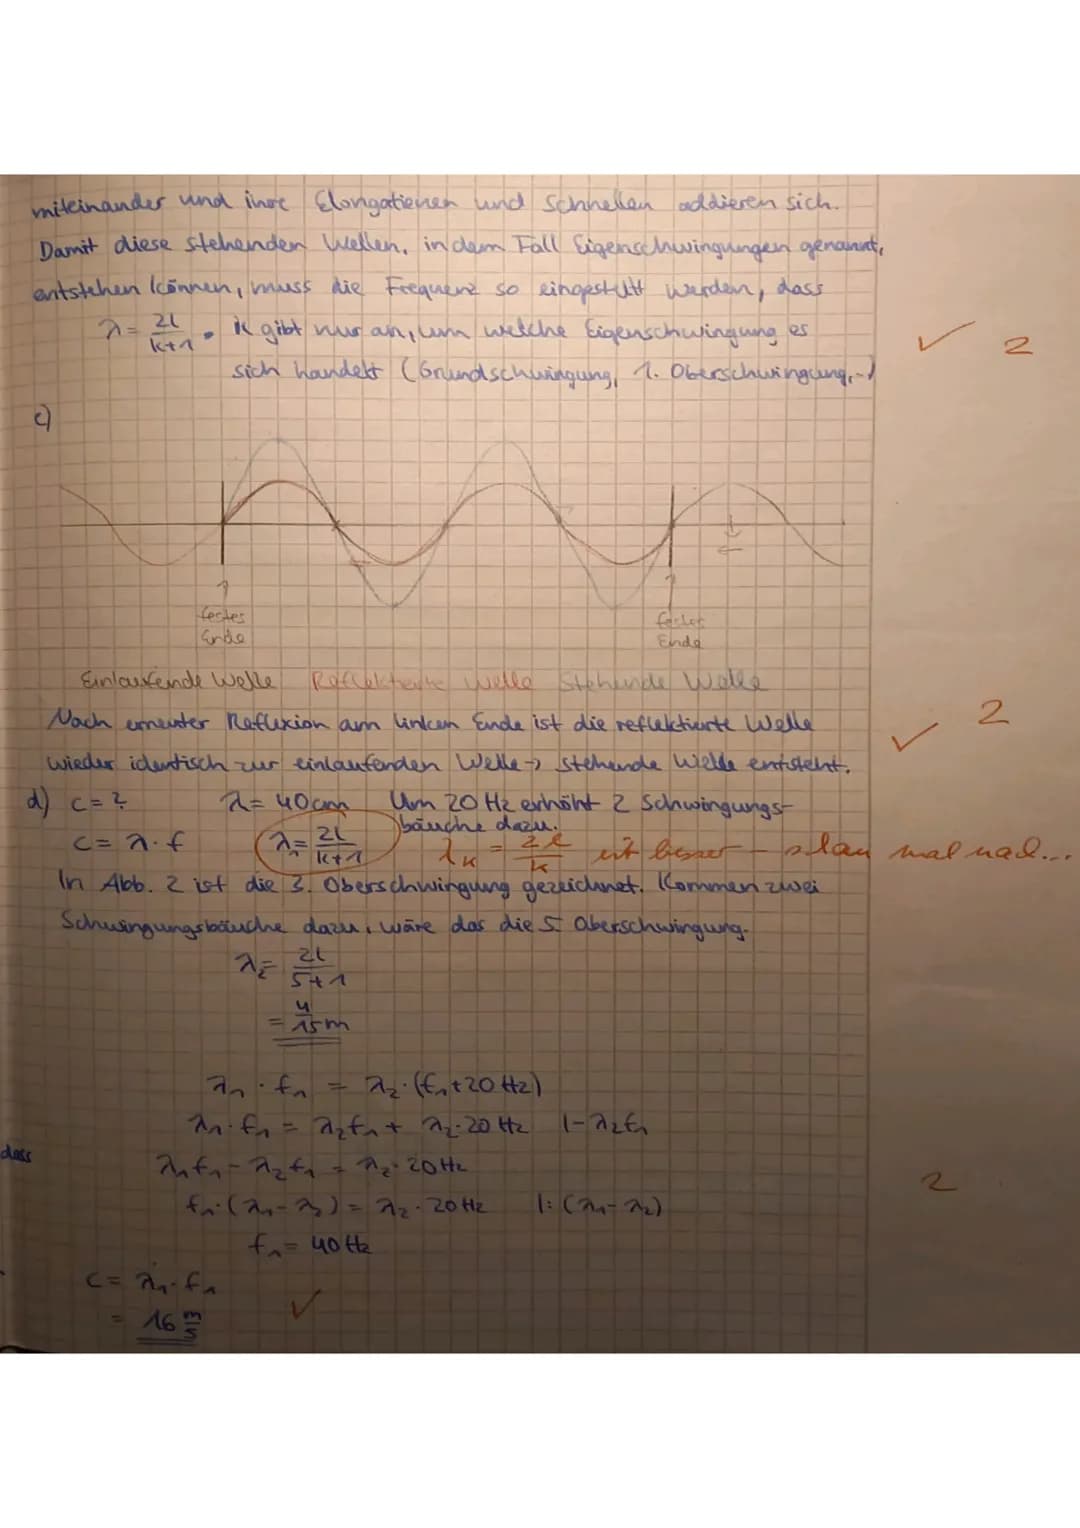 miteinander und ihre Elongationen und Schnellen addieren sich.
Damit diese stehenden Wellen, in dem Fall Eigenschwingungen genannt,
entstehen können, muss die Frequenz so eingestellt werden, dass
λ = 2l/k+1 . k gibt nur an, um welche Eigenschwingung es
sich handelt (Grundschwingung, 1. Oberschwingung,..)
✓ 2
c)
festes Ende
festes Ende
Einlaufende Welle Reflektierte Welle Stehende Welle
Nach erneuter Reflexion am linken Ende ist die reflektierte Welle
wieder identisch zur einlaufenden Welle → stehende Welle entsteht.
✓ 2
d) c = ? λ = 40cm Um 20 Hz erhöht 2 Schwingungs-
bäuche dazu.
c = λ · f λ₁ = 2l/k+1 λk = 2l/k ist besser mal nach...
In Abb. 2 ist die 3. Oberschwingung gezeichnet. Kommen zwei
Schwingungsbäuche dazu, wäre das die 5. Oberschwingung.
λ₂ = 2l/5+1
= 4/15 m
λ₁ · f₁ = λ₂ · (f₁ + 20 Hz)
λ₁ · f₁ = λ₂f₁ + λ₂ · 20 Hz |-λ₂f₁
dass
λ₁f₁ - λ₂f₁ = λ₂ · 20 Hz
f₁ · (λ₁ - λ₂) = λ₂ · 20 Hz |: (λ₁ - λ₂)
2
f₁ = 40 Hz
c = λ₁ · f₁
= 16 m/s ✓